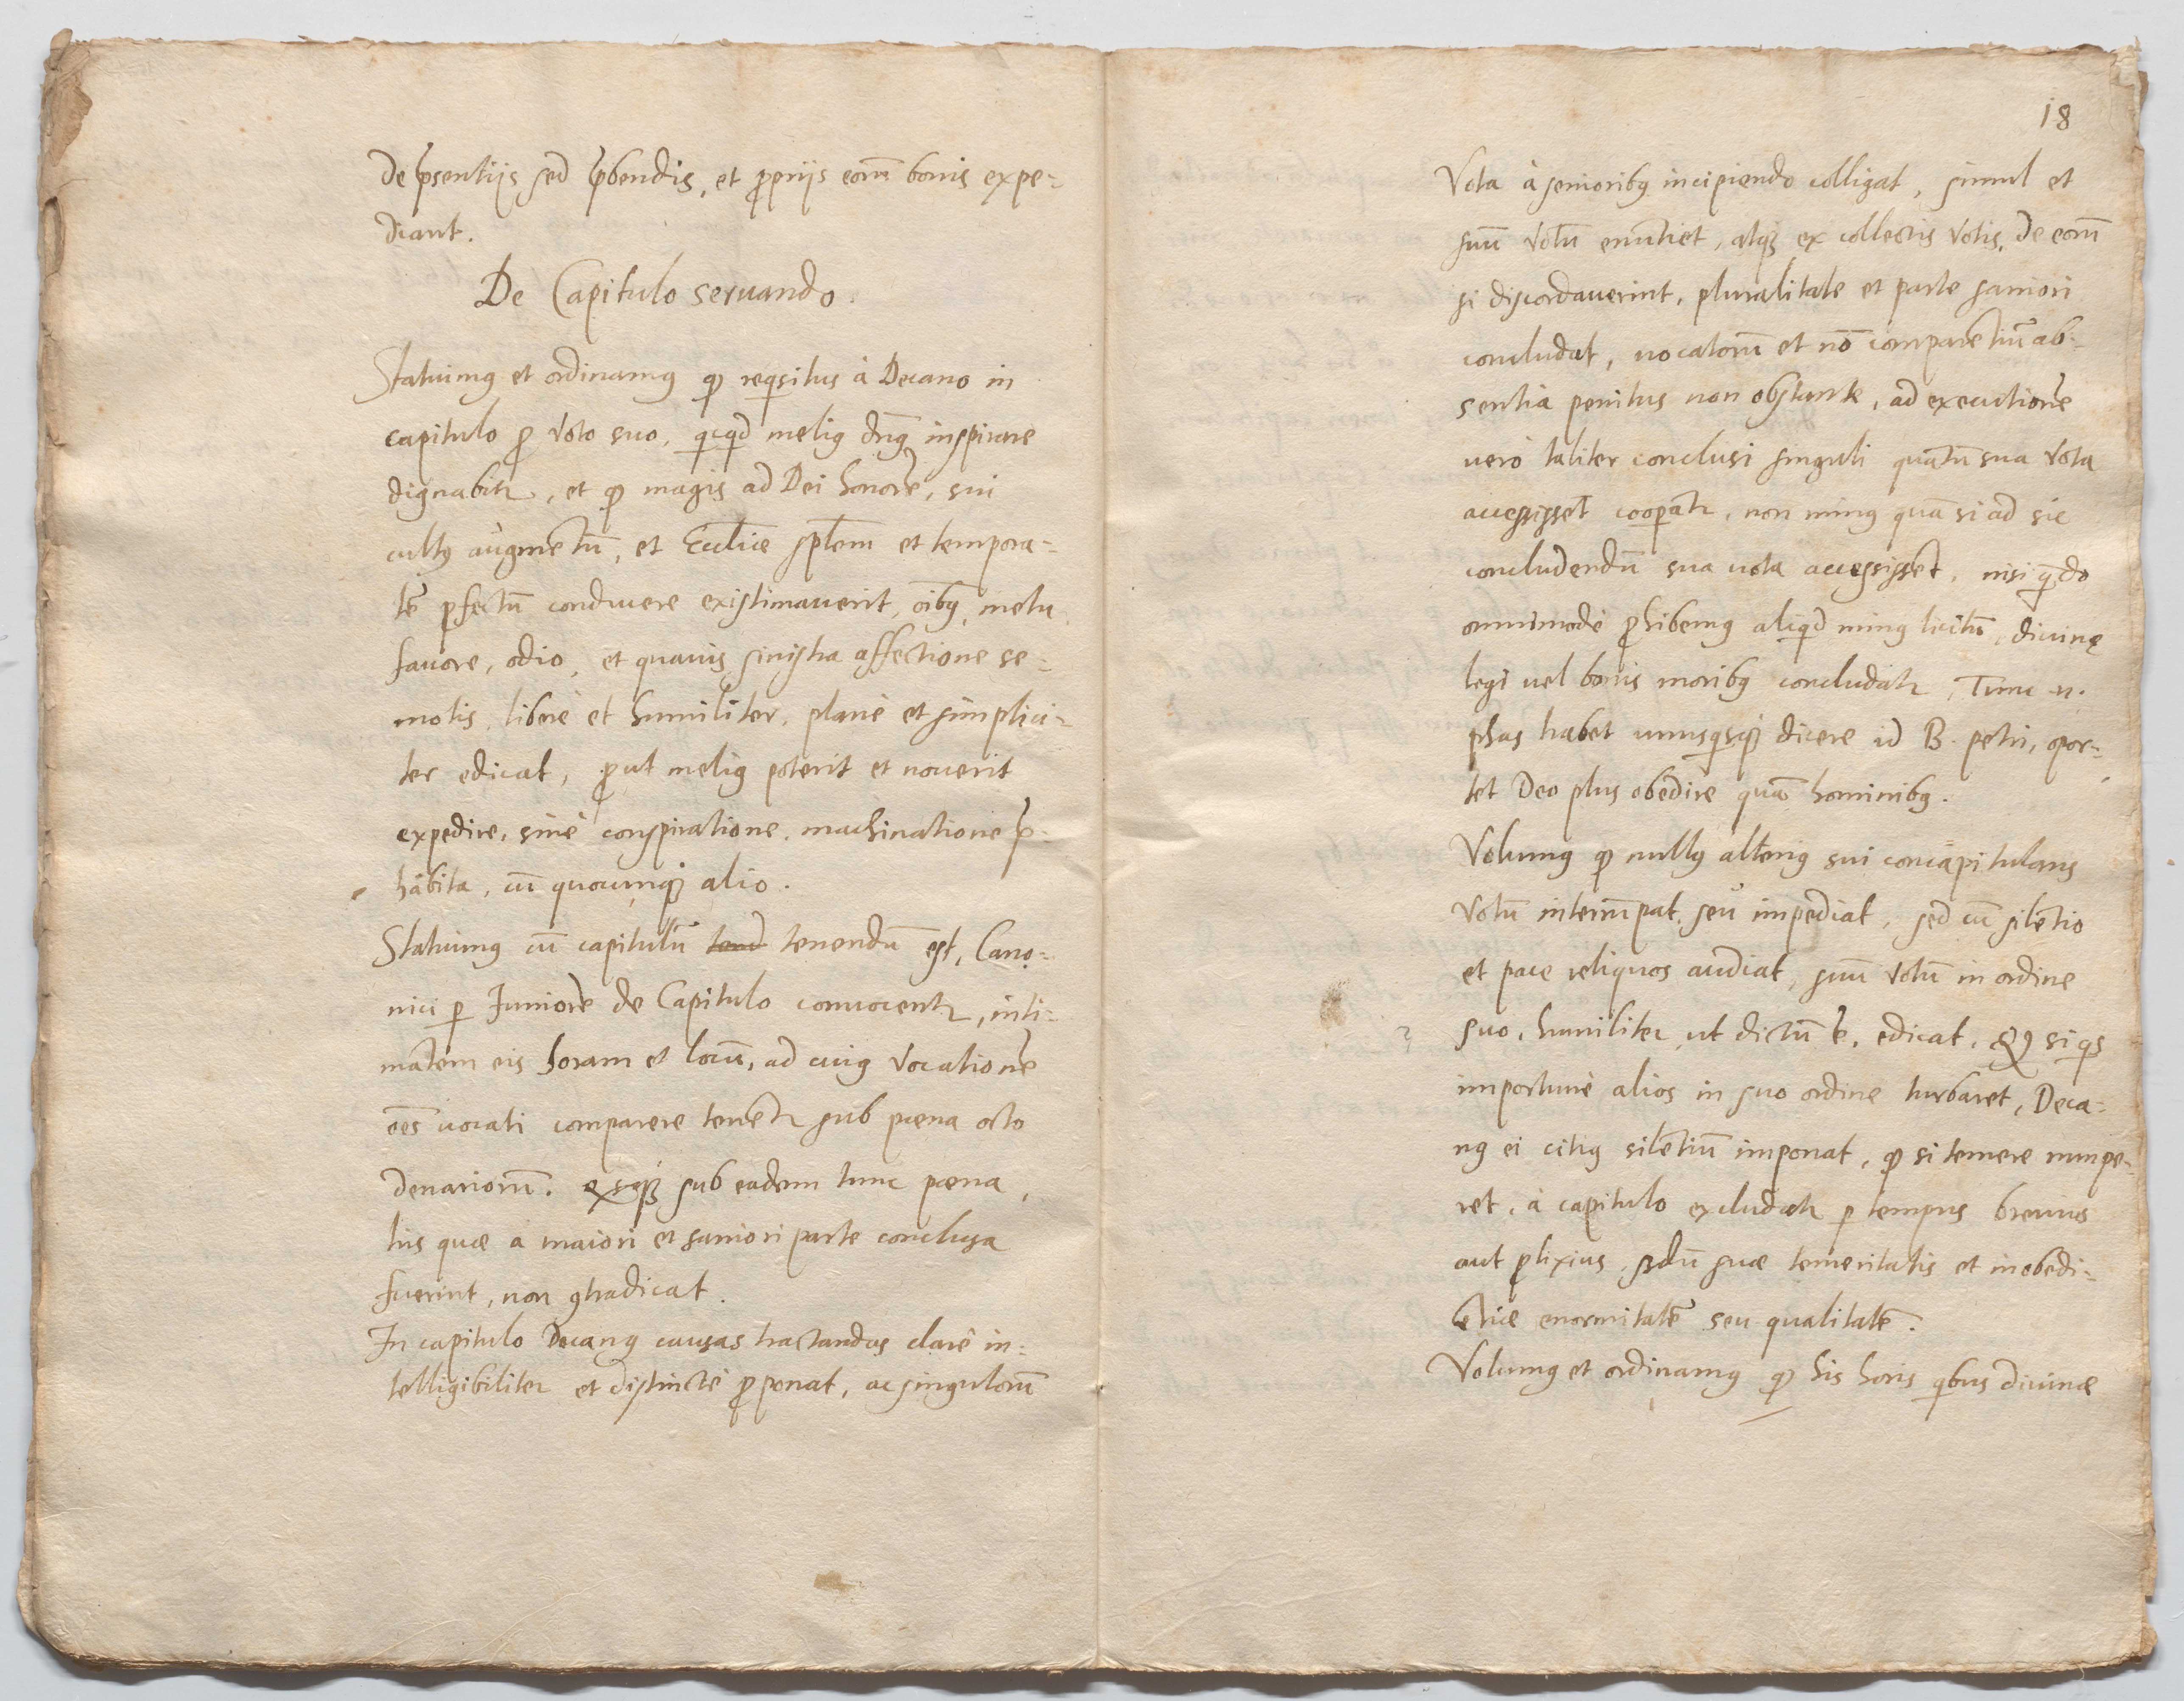 De p̃sentijs sed p̃bendis, et ꝓprijs eorũ bonis expe-
diant.
De Capitulo seruando.
Statuimꝯ et ordinamꝯ ꝙ reqsitus à Decano in
capitulo ꝓ voto suo, qcqd meliꝯ dñꝯ inspirare
dignabitr, et ꝙ magis ad Dei honorẽ, sui
cultꝯ augmentũ, et Eccliæ spłem et tempora-
lẽ ꝓfectũ conducere existimauerit, oĩbꝯ, metu
fauore, odio, et quauis sinistra affectione se-
motis, liberè et humiliter, planè et simplici-
ter edicat, ꝓut meliꝯ poterit et nouerit
expedire, sinè conspiratione, machinatione p̃-
habita, cũ quocunqꝫ alio.
Statuimꝯ cũ capitulũ tend tenendũ est, Cano-
nici ꝑ Juniorẽ de Capitulo conuocentr, inti-
mãtem eis horam et locũ, ad cuiꝯ vocationẽ
oẽs uocati comparere tenẽtr sub pœna octo
denariorũ. eisqꝫ sub eadem tunc pœna,
his quæ a maiori et saniori parte conclusa
fuerint, non ꝯtradicat.
In capitulo Decanꝯ causas tractandas clarè in-
telligibiliter et distinctè ꝓponat, ac singulorũ
18
Vota à senioribꝯ incipiendo colligat, simul et
suũ votũ enũtiet, atqꝫ ex collectis votis, de eorũ
si discordauerint, pluralitate et parte saniori
concludat, uocatorũ et nõ comparẽtiũ ab-
sentia penitus non obstante, ad executionẽ
uerò taliter conclusi singuli quãtũ sua vota
accessissẽt cooꝑatr, non minꝯ quã si ad sic
concludendũ sua uota accessissẽt, nisi qñdo
omnimodè ꝓhibemꝯ aliqd minꝯ licitũ, diuinę
legi uel bonis moribꝯ concludatr, Tunc .n.
phas habet unusqsqꝫ dicere id B. petri, opor-
tet Deo plus obedire quã hominibꝯ.
Volumꝯ ꝙ nullꝯ alteriꝯ sui concapitulans
votũ interrũpat, seu impediat, sed cũ silẽtio
et pace reliquos audiat, suũ votũ in ordine
suo, humiliter ut dictũ ẽ, edicat, Qꝙ si qs
importunè alios in suo ordine turbaret, Deca-
nꝯ ei citiꝯ silẽtiũ imponat, ꝙ si temere rumpe-
ret, à capitulo excludatr ꝑ tempus breuius
aut ꝓlixius, scdũ suæ temeritatis et inobedi-
ẽtiæ enormitatẽ seu qualitatẽ.
Volumꝯ et ordinamꝯ ꝙ his horis qbus diuinæ